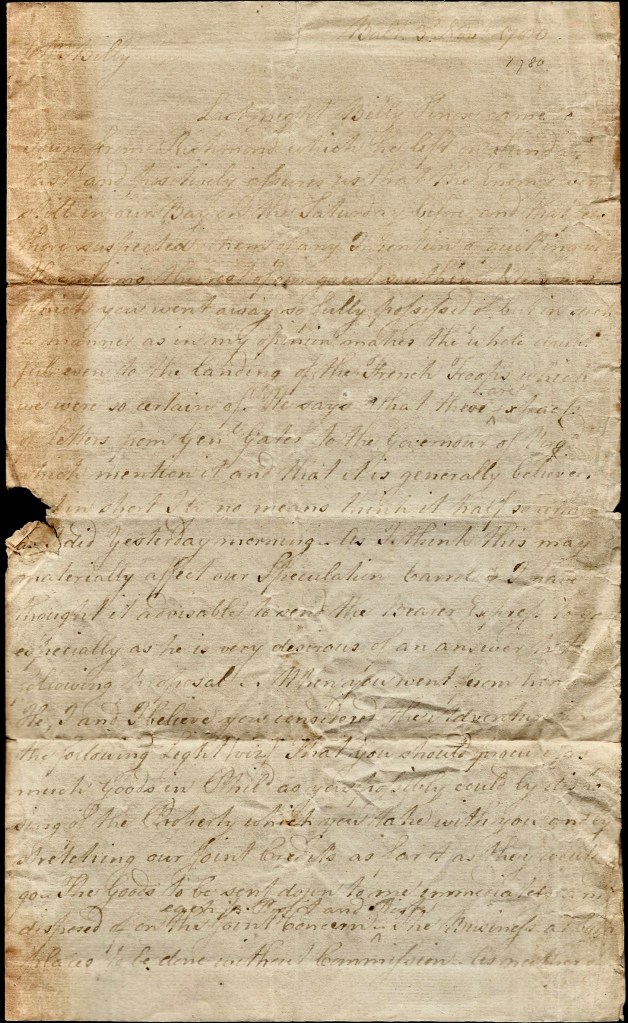 Balt. 3d Nov 1780.
1780.
Dr. Billy
Last night Billy Knox came to
Town from Richmond which he left on Monday
last and positively assures us that the Enemy were
still in our Bay on the Saturday before and that no
there suspected them of any Intention of quitting us
the rest of our great southern News
which you went away so fully possessed of but in such
a manner as in my opinion makes the whole
even to the landing of the French Troops which
we were so certain of. He says that there are extracts
of letters from Genl. Gates to the Governour of Virga.
which mention it and that it is generally believed
in short I by no means think it half so certain
as I did Yesterday morning. As I think this may
materially affect our Speculation I have
thought it advisable to send the Bearer Express to you
especially as he is very desirous of an answer to the
following Proposal. When you went from here
He, I and I believe you considered the Adventure in
the following Light (viz) That you should procure as
much Goods in Phila. as you possibly could by dispo
sing of the Property which you take with you and by
stretching our Joint Credits as far as they would
go. The Goods to be sent down to me immediately and
equal Profit and Risk
disposed of on the Joint Concern. The Business at both
Places to be done without Commission.